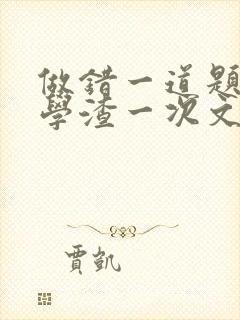 做错一道题
學渣一次文
賈凱